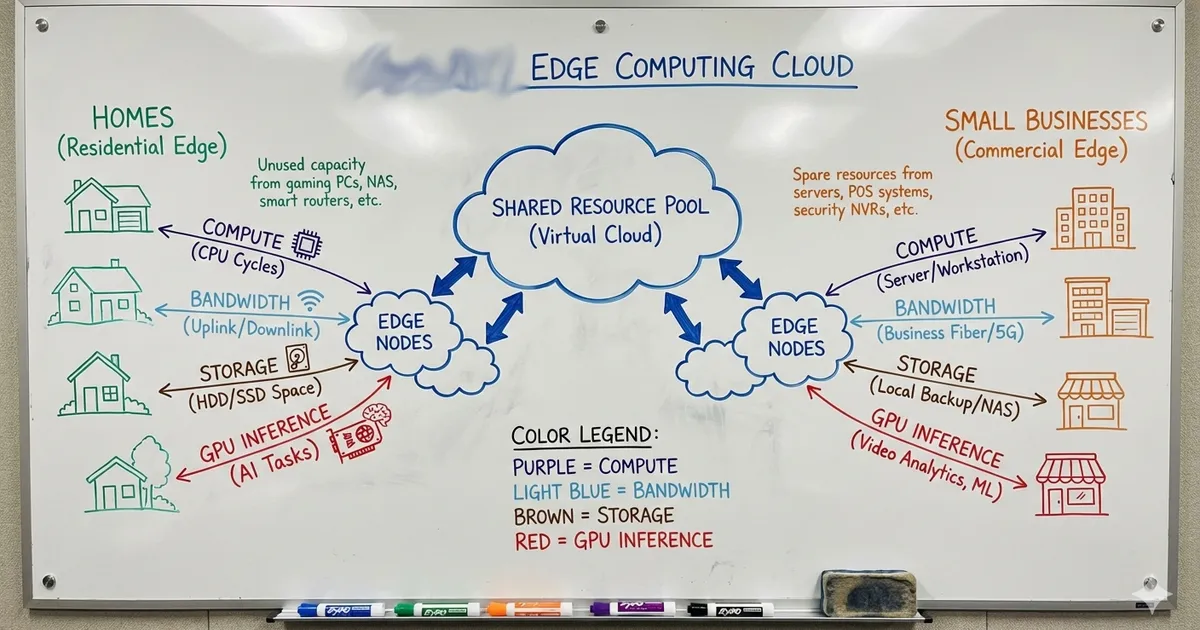 EDGE COMPUTING CLOUD
HOMES
(Residential Edge)
Unused capacity
from gaming PCs, NAS,
smart routers, etc.
COMPUTE
(CPU Cycles)
BANDWIDTH
(Uplink/Downlink)
STORAGE
(HDD/SSD Space)
GPU INFERENCE
(AI Tasks)
EDGE
NODES
SHARED RESOURCE POOL
(Virtual Cloud)
SMALL BUSINESSES
(Commercial Edge)
Spare resources from
servers, POS systems,
security NVRs, etc.
COMPUTE
(Server/Workstation)
BANDWIDTH
(Business Fiber/5G)
STORAGE
(Local Backup/NAS)
GPU INFERENCE
(Video Analytics, ML)
EDGE
NODES
COLOR LEGEND:
PURPLE = COMPUTE
LIGHT BLUE = BANDWIDTH
BROWN = STORAGE
RED = GPU INFERENCE
EXPO
EXPO
EXPO
EXPO
EXPO